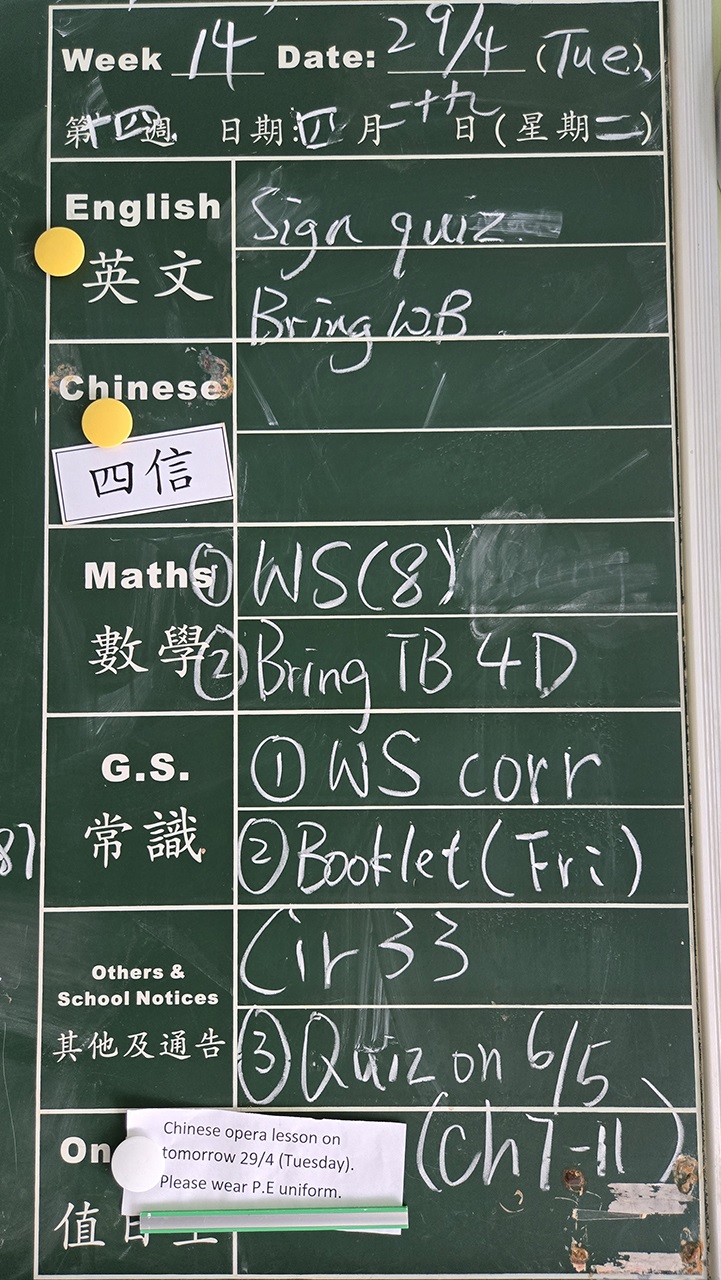 Week 14 Date: 29/4 (Tue)
第十四週 日期:四月二十九日(星期二)
English
英文
Sign quiz
Bring WB
Chinese
四信
Maths
數學
① WS(8)
② Bring TB 4D
G.S.
常識
① WS corr
② Booklet (Fri)
87
Others &
School Notices
其他及通告
Cir 33
③ Quiz on 6/5
(Ch 7-11)
On
值日生
Chinese opera lesson on
tomorrow 29/4 (Tuesday).
Please wear P.E uniform.